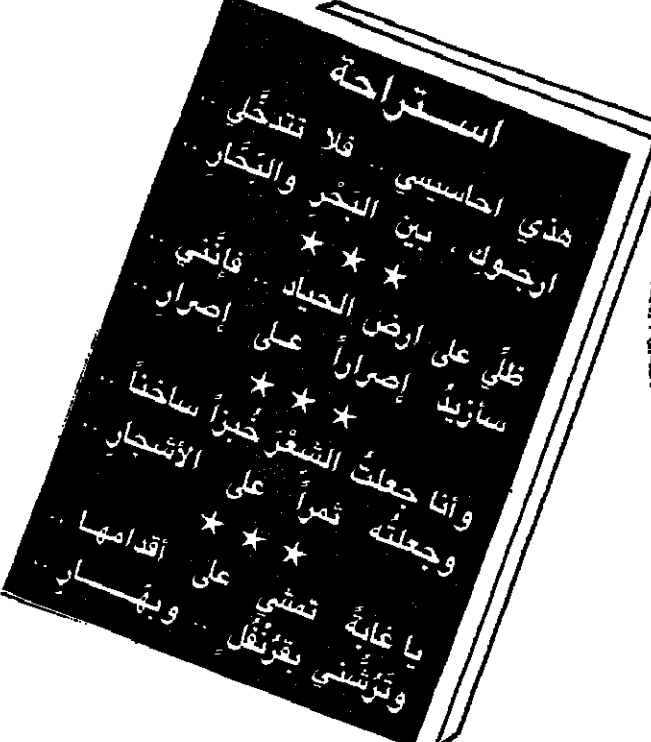 استراحة
هذي احاسيسي .. فلا تتدخَّلي ..
ارجوكِ ، بين البَحْرِ والبَحَّارِ ..
★ ★ ★
ظلِّي على ارض الحياد .. فإنَّني ..
سأزيدُ إصراراً على إصرارِ ..
★ ★ ★
وأنا جعلتُ الشعْرَ خُبزاً ساخناً ..
وجعلتُه ثمراً على الأشجارِ ..
★ ★ ★
يا غابةً تمشي على أقدامها ..
وتَرُشُّني بقرُنْفُلٍ .. وبهَارِ ..